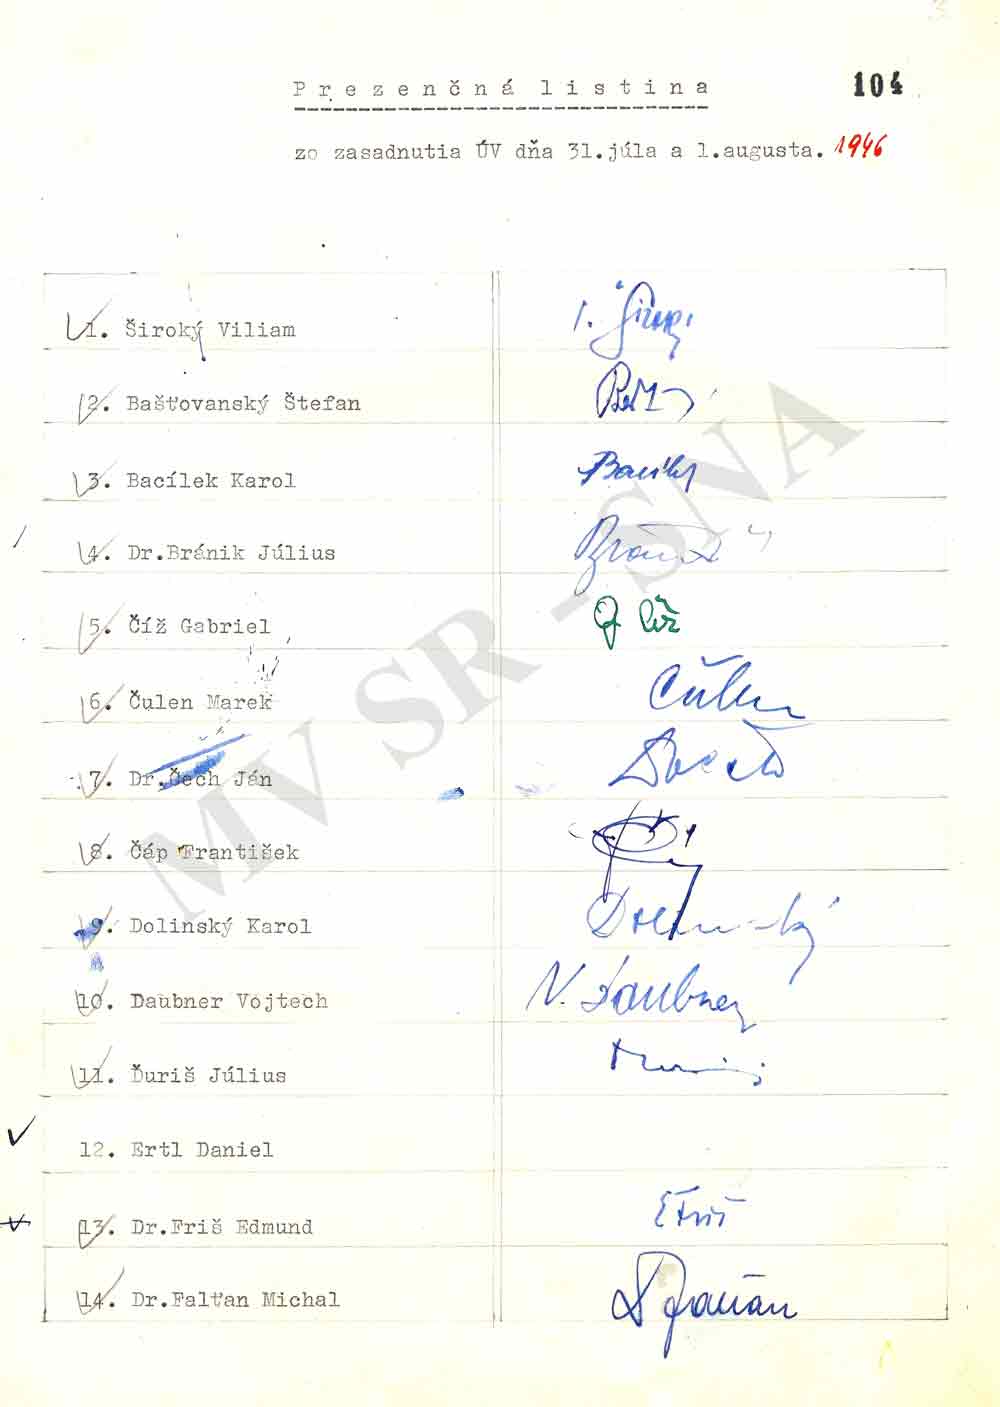 Prezenčná listina
104
zo zasadnutia ÚV dňa 31.júla a 1.augusta. 1946
1. Široký Viliam
2. Bašťovanský Štefan
3. Bacílek Karol
4. Dr.Bránik Július
5. Číž Gabriel
6. Čulen Marek Čulen
7. Dr.Čech Ján
8. Čáp František
9. Dolinský Karol Dolinský
10. Daubner Vojtech V. Daubner
11. Ďuriš Július
12. Ertl Daniel
13. Dr.Friš Edmund EFriš
14. Dr.Falťan Michal
MV SR - SNA